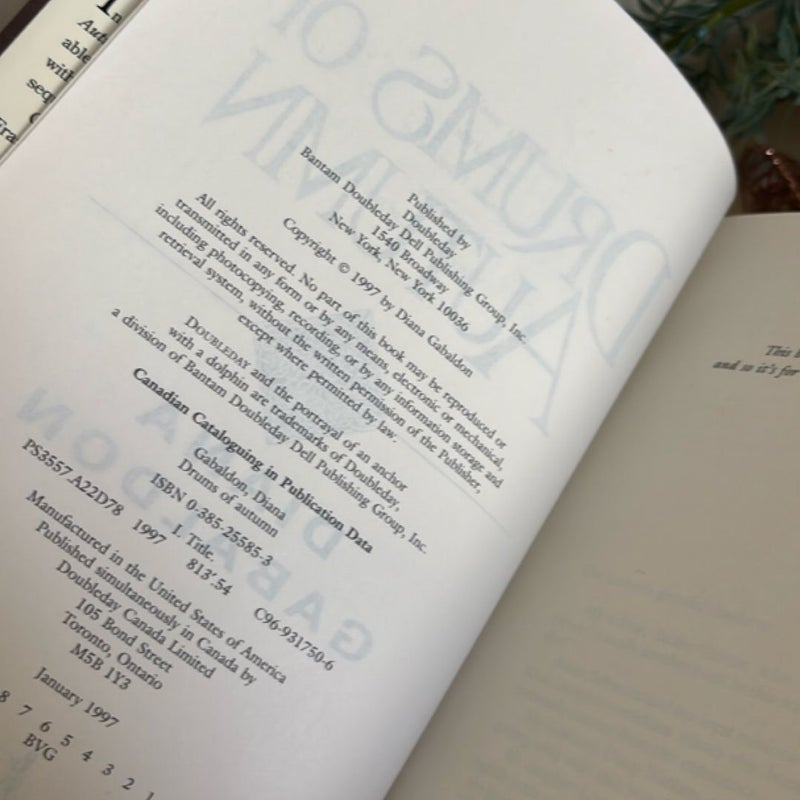 In
Aut
able
with
seq
Fra
Published by
Doubleday
Bantam Doubleday Dell Publishing Group, Inc.
1540 Broadway
New York, New York 10036
Copyright © 1997 by Diana Gabaldon
All rights reserved. No part of this book may be reproduced or
transmitted in any form or by any means, electronic or mechanical,
including photocopying, recording, or by any information storage and
retrieval system, without the written permission of the Publisher,
except where permitted by law.
DOUBLEDAY and the portrayal of an anchor
with a dolphin are trademarks of Doubleday,
a division of Bantam Doubleday Dell Publishing Group, Inc.
Canadian Cataloguing in Publication Data
Gabaldon, Diana
Drums of autumn
ISBN 0-385-25585-3
I. Title.
PS3557 A22D78 1997 813'.54 C96-931750-6
Manufactured in the United States of America
Published simultaneously in Canada by
Doubleday Canada Limited
105 Bond Street
Toronto, Ontario
M5B 1Y3
January 1997
8 7 6 5 4 3 2 1
BVG
DRUMS OF
AUTUMN
DIANA
GABALDON
This b
and so it's for